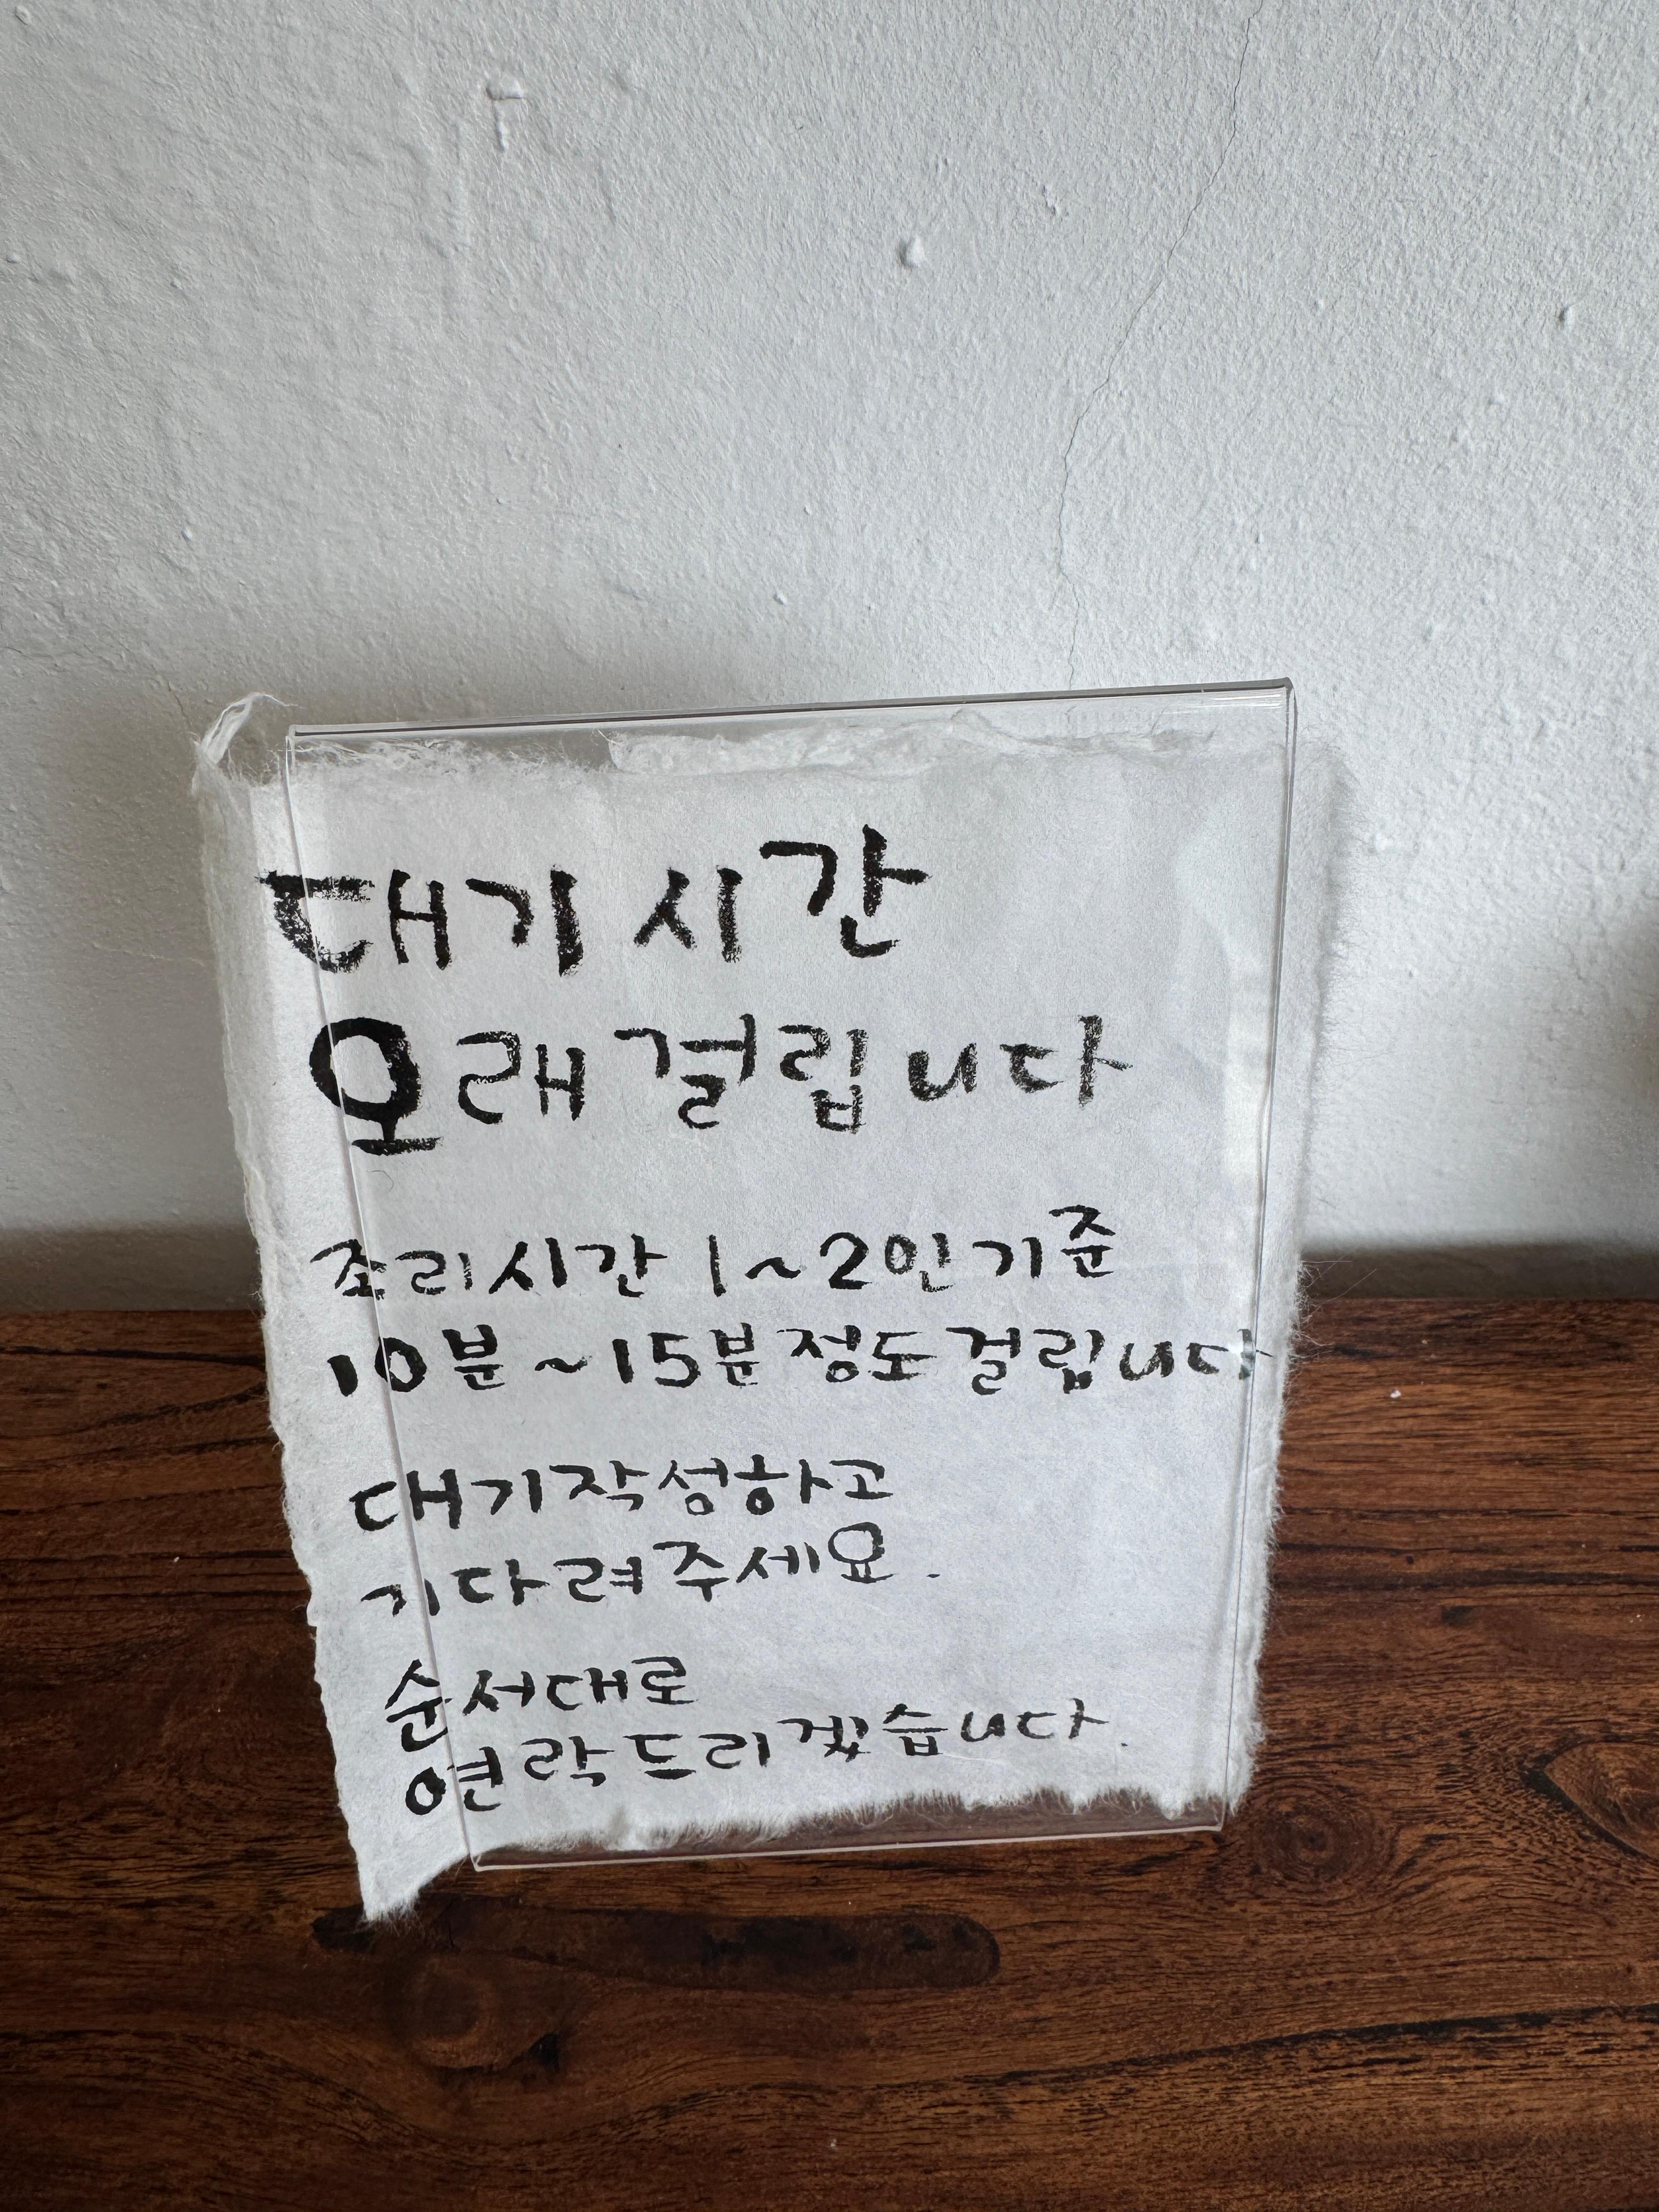 대기 시간
오래 걸립니다
조리시간 1~2인 기준
10분~15분 정도 걸립니다
대기작성하고
기다려주세요.
순서대로
연락드리겠습니다.